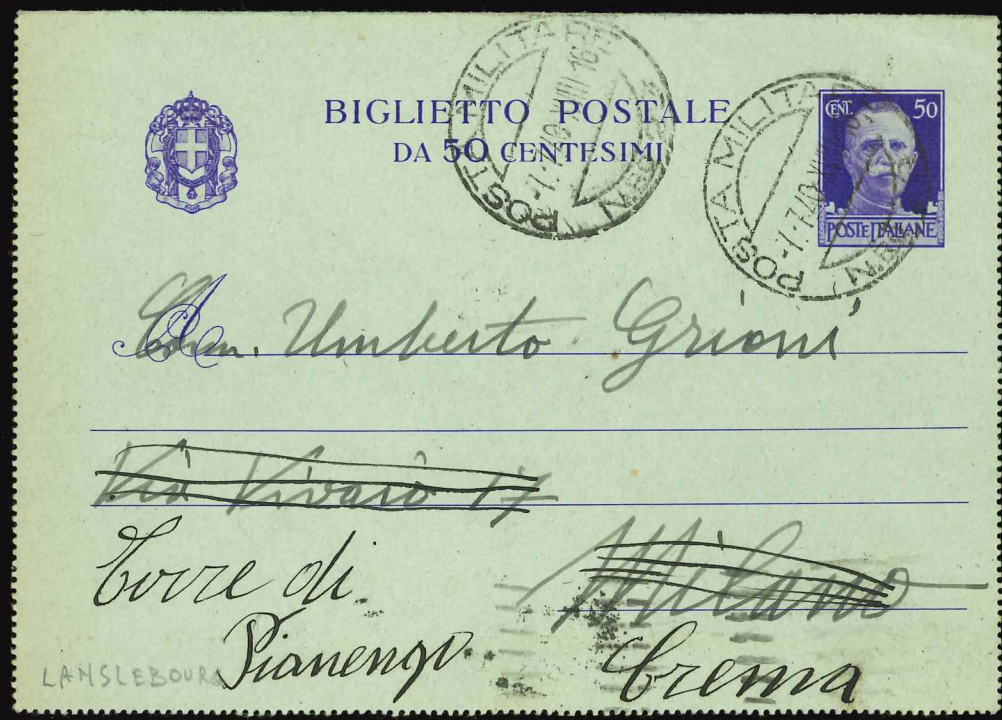 BIGLIETTO POSTALE
DA 50 CENTESIMI
POSTA MILITARE
POSTA MILITARE
CENT. 50
POSTE ITALIANE
A
Umberto Grioni
Via Vivaio 17
Milano
Torre di
Pianengo.
Crema
LANSLEBOURG